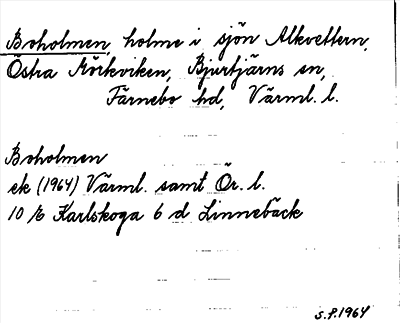 Boholmen, holme i sjön Alkvettern,
Östra Mörkviken, Bjurtjärns sn,
Färnebo hd, Värml. l.
Boholmen
ek (1964) Värml. samt Ör. l.
10 E Karlskoga 6 d Linnebäck
S.F. 1964